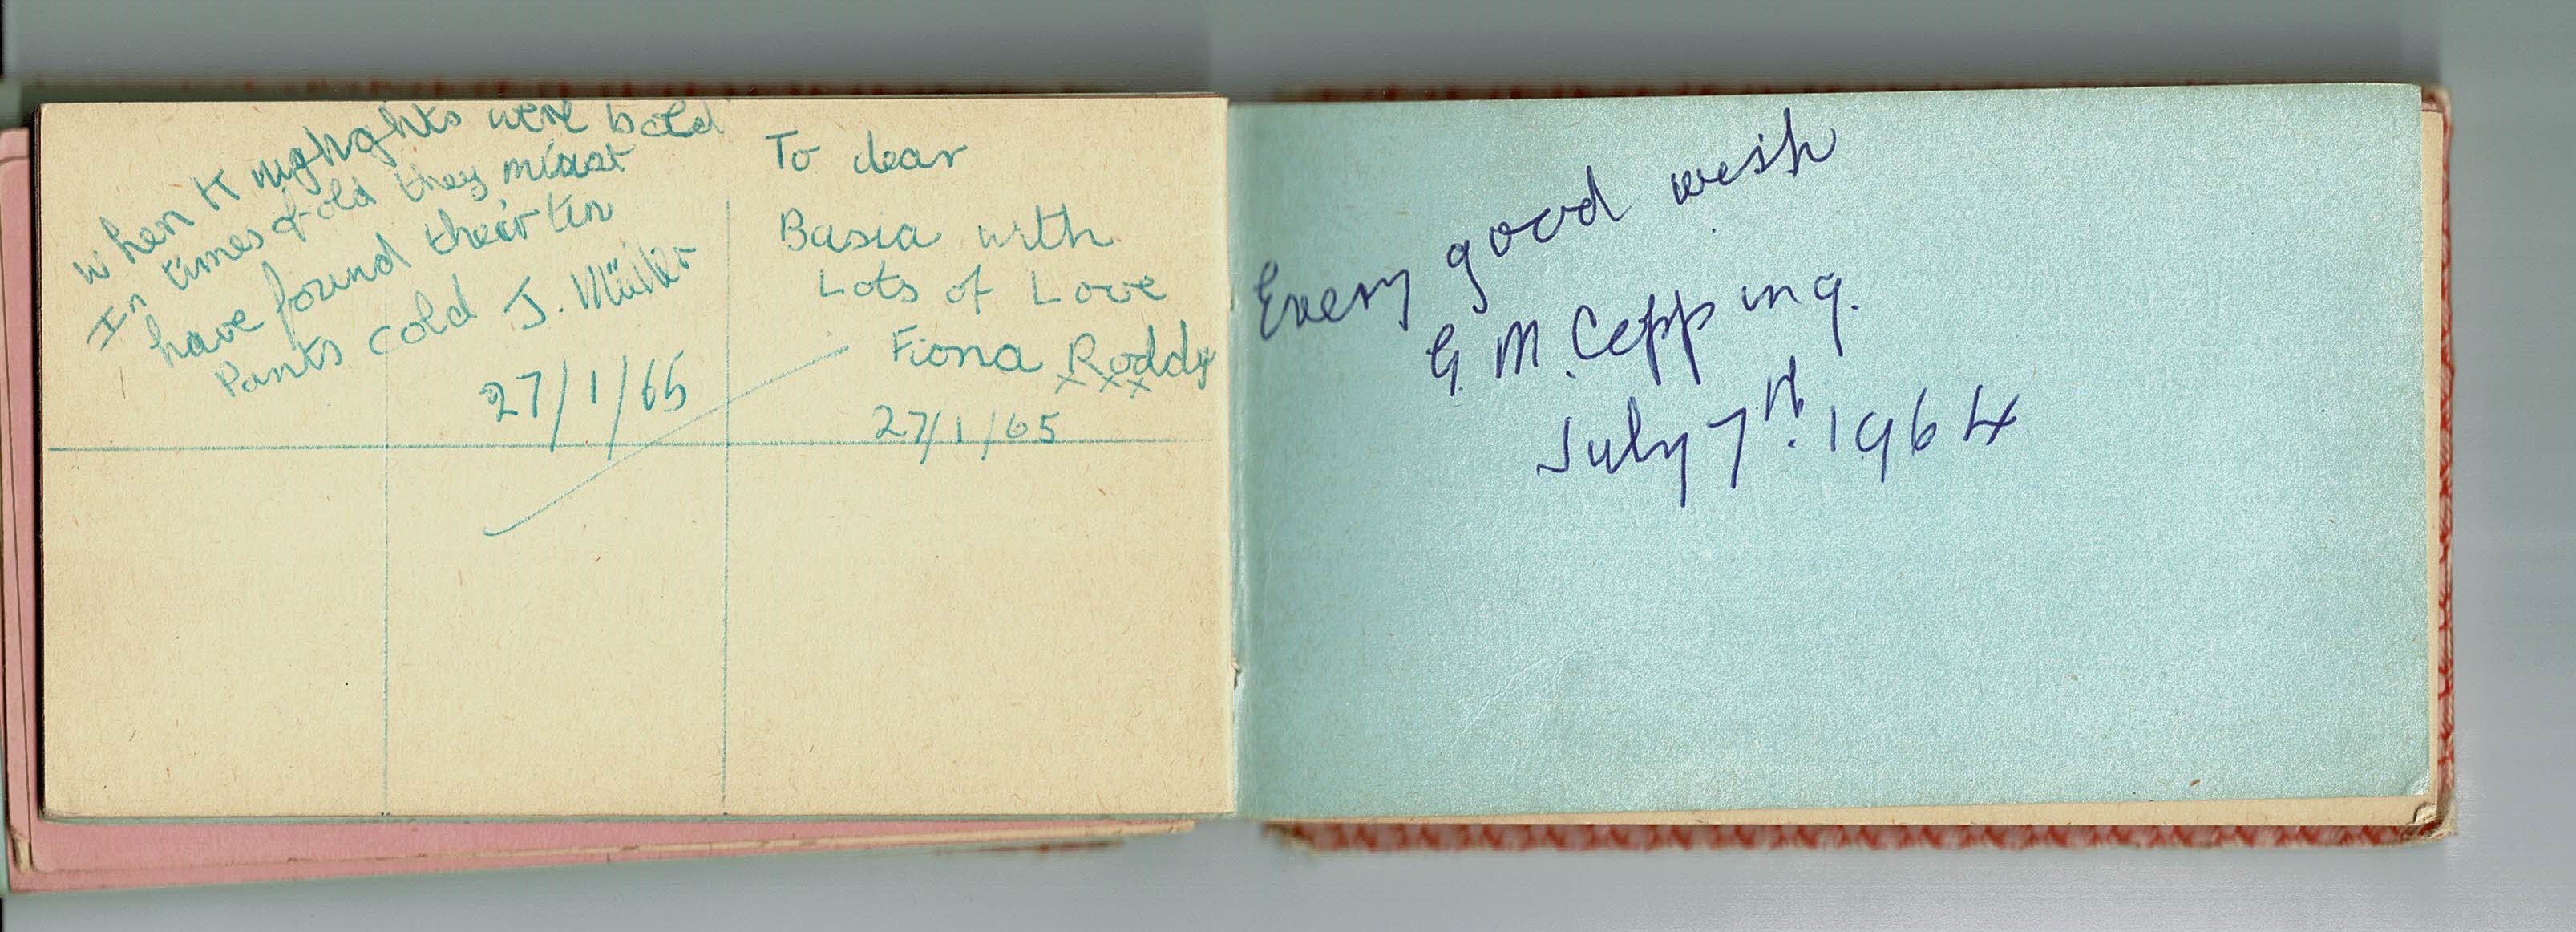 When Knughghts were bold
In times of old they miaat
have found their tin
Pants cold J. Müller
27/1/65
To dear
Basia with
Lots of Love
Fiona Roddy
x x x
27/1/65
Every good wish
G. M. Cepping.
July 7th. 1964